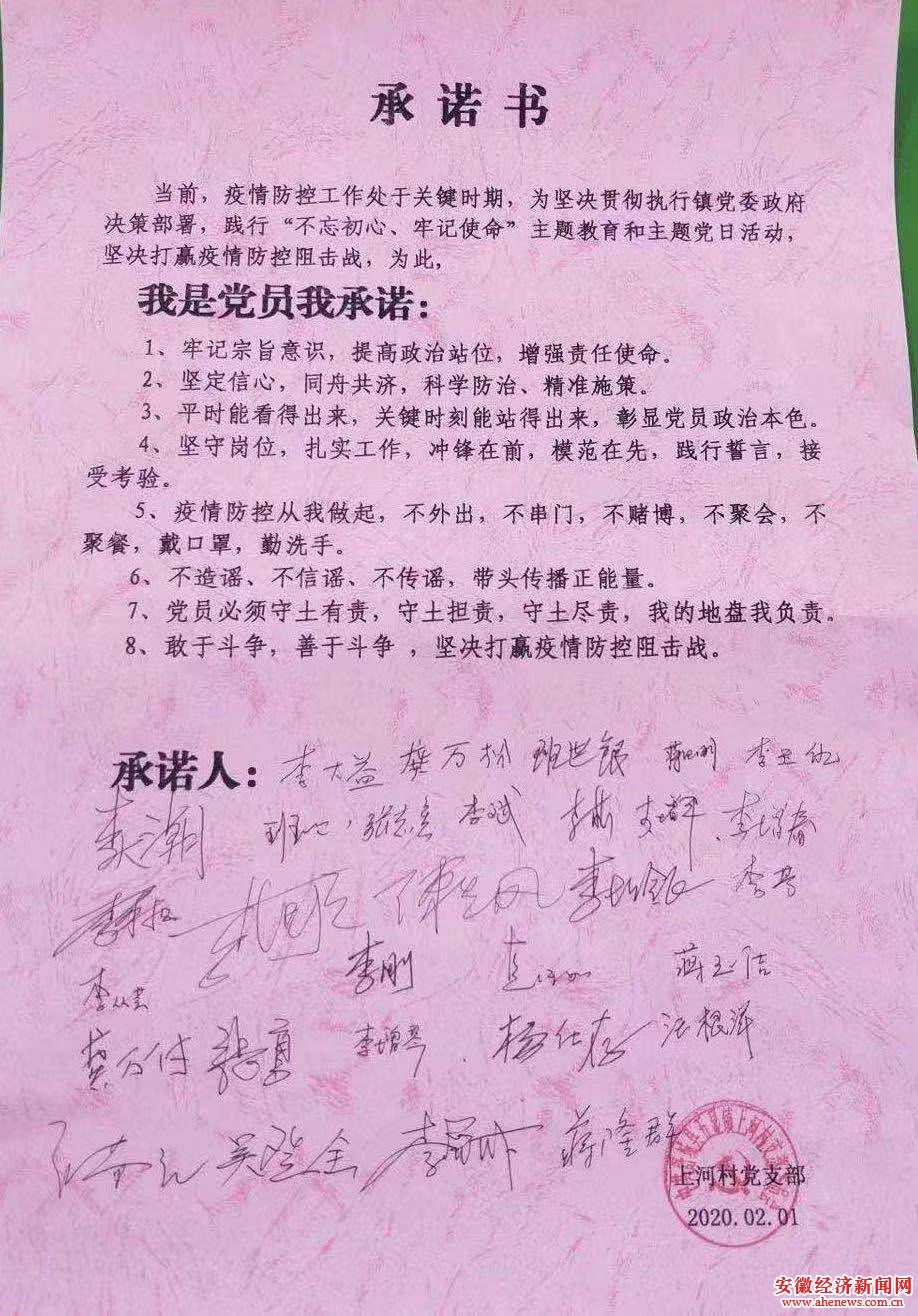 承诺书
当前，疫情防控工作处于关键时期，为坚决贯彻执行镇党委政府
决策部署，践行“不忘初心、牢记使命”主题教育和主题党日活动，
坚决打赢疫情防控阻击战，为此，
我是党员我承诺：
1、牢记宗旨意识，提高政治站位，增强责任使命。
2、坚定信心，同舟共济，科学防治、精准施策。
3、平时能看得出来，关键时刻能站得出来，彰显党员政治本色。
4、坚守岗位，扎实工作，冲锋在前，模范在先，践行誓言，接
受考验。
5、疫情防控从我做起，不外出，不串门，不赌博，不聚会，不
聚餐，戴口罩，勤洗手。
6、不造谣、不信谣、不传谣，带头传播正能量。
7、党员必须守土有责，守土担责，守土尽责，我的地盘我负责。
8、敢于斗争，善于斗争，坚决打赢疫情防控阻击战。
承诺人：李大益 龚万 班世银
李潮 李斌 李增春
李增银
李刚 蒋玉洁
龚万付 李增 杨仕存 汪根洋
吴登全 蒋隆群
上河村党支部
2020.02.01
安徽经济新闻网
www.ahenews.com.cn